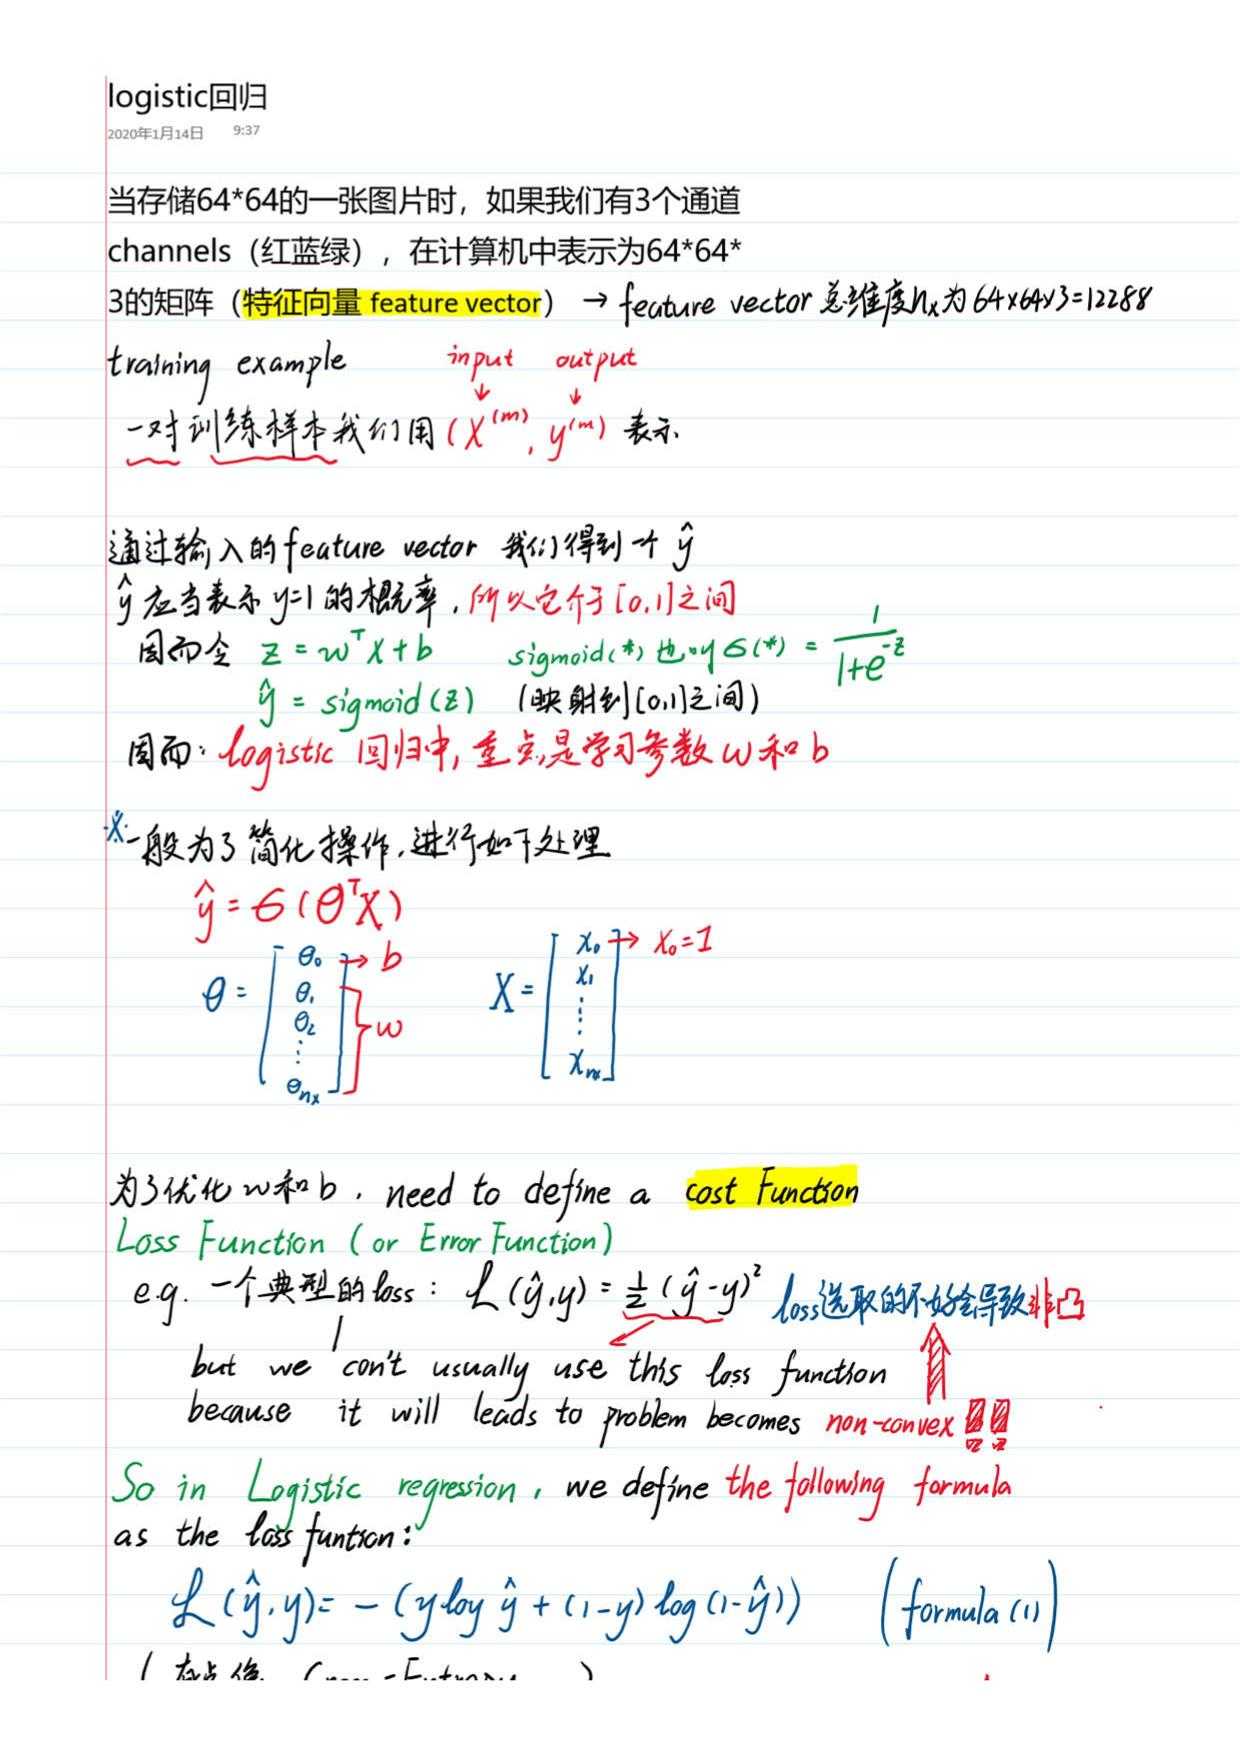 logistic回归
2020年1月14日 9:37
当存储64*64的一张图片时，如果我们有3个通道
channels（红蓝绿），在计算机中表示为64*64*
3的矩阵（特征向量 feature vector） → feature vector 总维度nx为64x64x3=12288
training example input output
↓ ↓
一对训练样本我们用(X^(m), y^(m)) 表示
通过输入的feature vector 我们得到一个 ŷ
ŷ 应当表示 y=1 的概率，所以它介于[0,1]之间
因而令 z = w^T X + b sigmoid(*) 也叫 σ(*) = 1/(1+e^-z)
ŷ = sigmoid(z) (映射到[0,1]之间)
因而: logistic 回归中, 重点是学习参数 w 和 b
※一般为了简化操作,进行如下处理
ŷ = σ(θ^T X)
θ = [θ0 θ1 θ2 ⋮ θnx] → b } w X = [x0 x1 ⋮ xnx] → x0=1
为了优化 w和b , need to define a cost Function
Loss Function (or Error Function)
e.g. 一个典型的loss: L(ŷ,y) = 1/2 (ŷ-y)² loss选取的不好会导致非凸
but we con't usually use this loss function
because it will leads to problem becomes non-convex !!
So in Logistic regression, we define the following formula
as the loss funtion:
L(ŷ,y)= -(y log ŷ + (1-y) log (1-ŷ)) (formula (1))